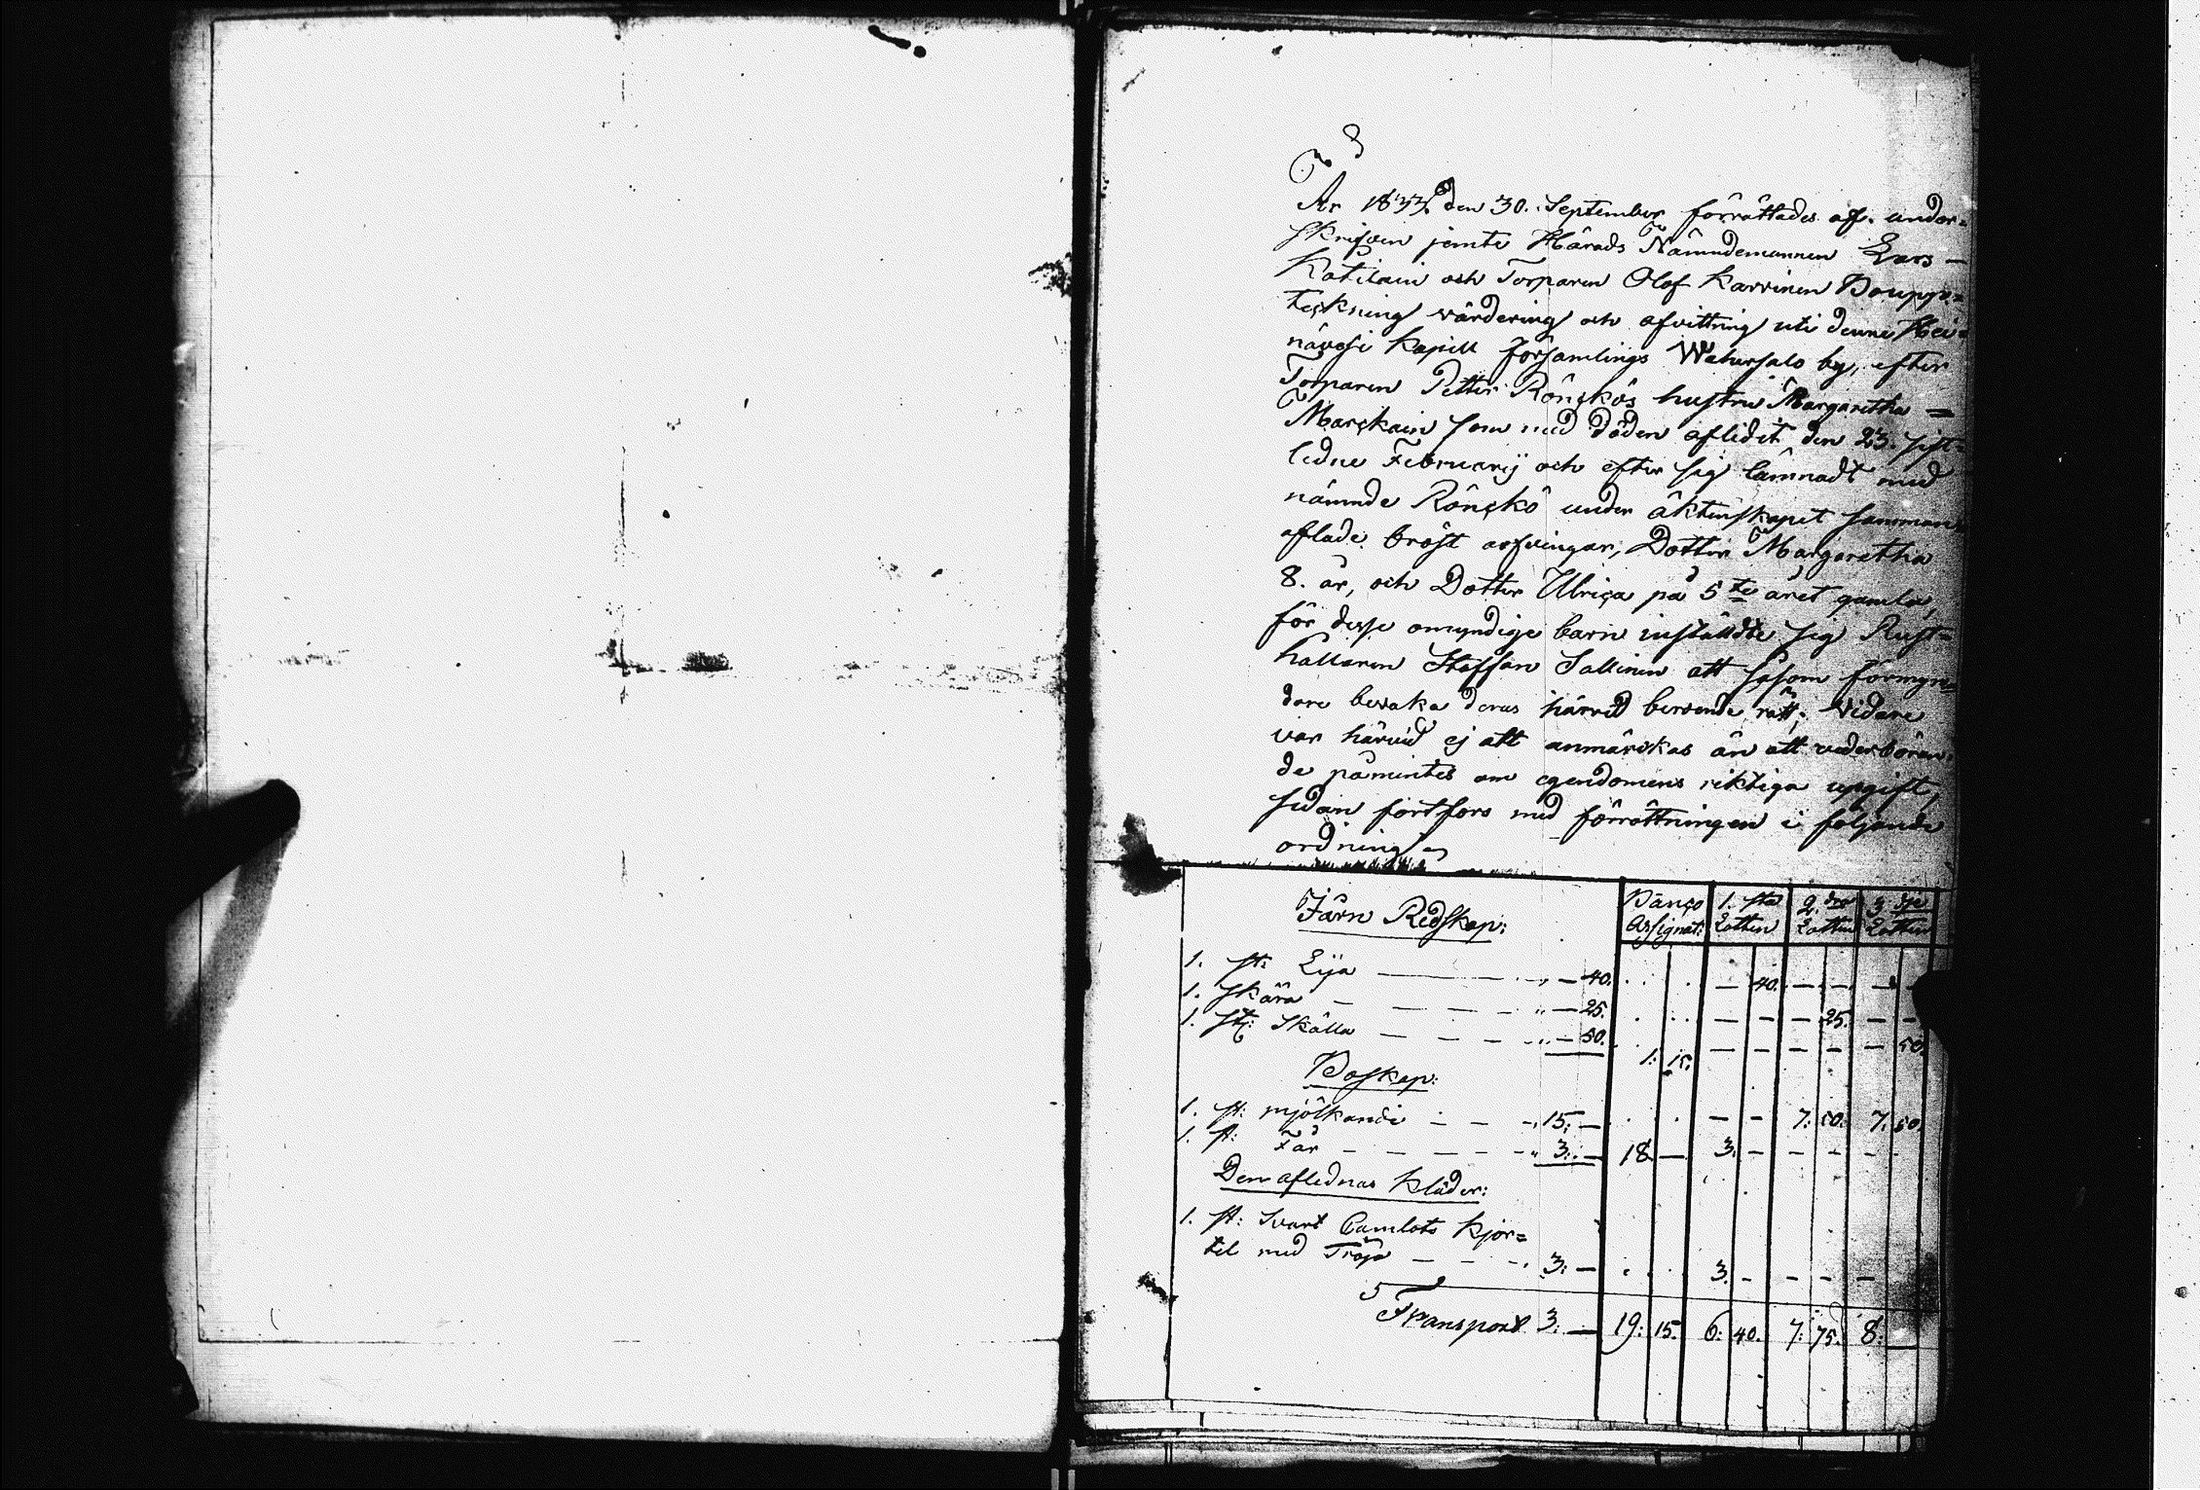 År 1833. den 30. September förrättades af under=
skrifven jemte Härads Nämndemannen Lars
Katilain och Torparen Olof Karvinen Boupp=
teckning värdering och afvittring uti denne Hei=
nävesi Kapell församlings Watersalo by, efter
Torparen Petter Rönckös hustru Margaretha =
Marckain som med döden aflidit den 23. sist=
ledne Februarij och efter sig lämnadt med
nämnde Rönckö under äktenskapet samman
aflade bröst arfvingar, Dotter Margaretha
8. år, och Dotter Ulrica på 5te året gamla,
för desse omyndige barn inställdte sig Rust=
hållaren Staffan Sallinen att såsom förmyn=
dare bevaka deras härvid beroende rätt; Vidare
var härvid ej att anmärckas än att vederböran=
de påmintes om egendomens riktiga upgift,
sedan fortfors med förrättningen i följande
ordning
Järn Redskap: Banco Assignat: 1. sta Lotten 2. dra Lotten 3. dje Lotten
1. st: Lija — 40. — 40. — — — —
1. skära — 25. — — — 25. — —
1. st: Skälla — 50. 1: 15. — — — — — 50.
Boskap:
1. st: mjölkande 15: — — — 7: 50. 7: 50.
1. st: Får 3: — 18 — 3: — — — — —
Den aflednas kläder:
1. st: Svart Camlots kjor=
tel med Tröja 3: — 3: — — — —
Transport 3: — 19: 15. 6: 40. 7: 75. 8: —